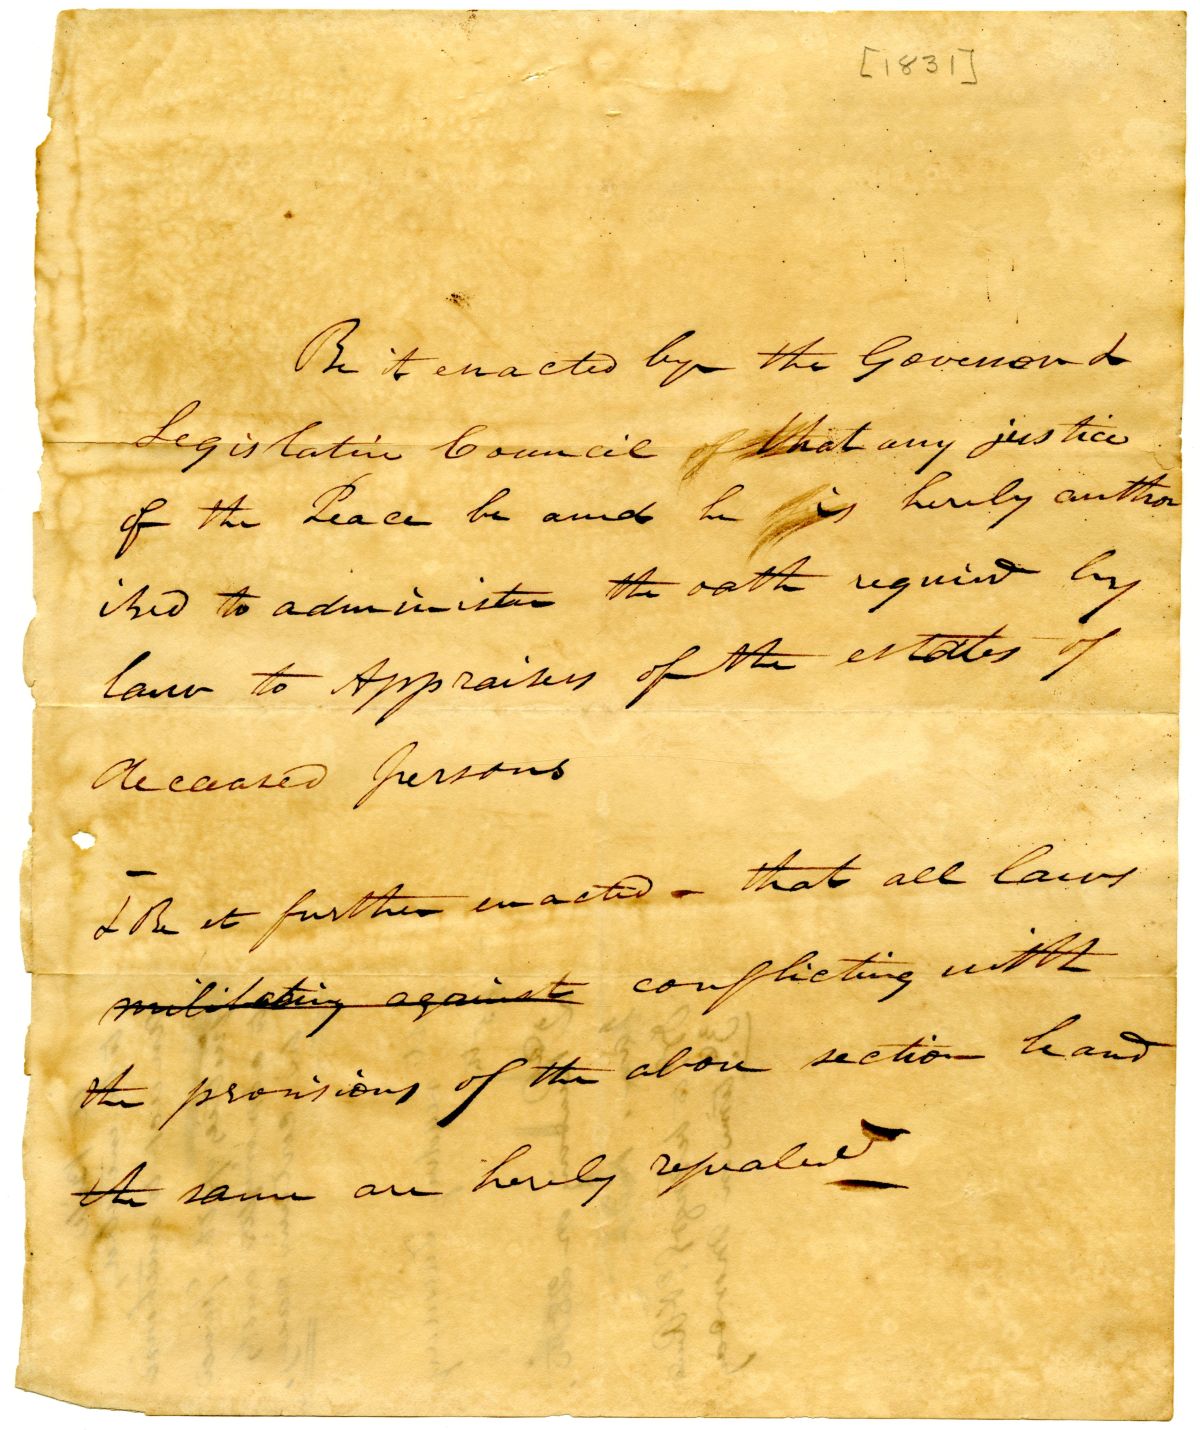 [1831]
Be it enacted by the Governor &
Legislative Council of that any justice
of the Peace be and he is hereby author
ised to administer the oath required by
law to Appraisers of the estates of
deceased persons
& Be it further enacted - that all laws
militating against conflicting with
the provisions of the above section be and
the same are hereby repealed